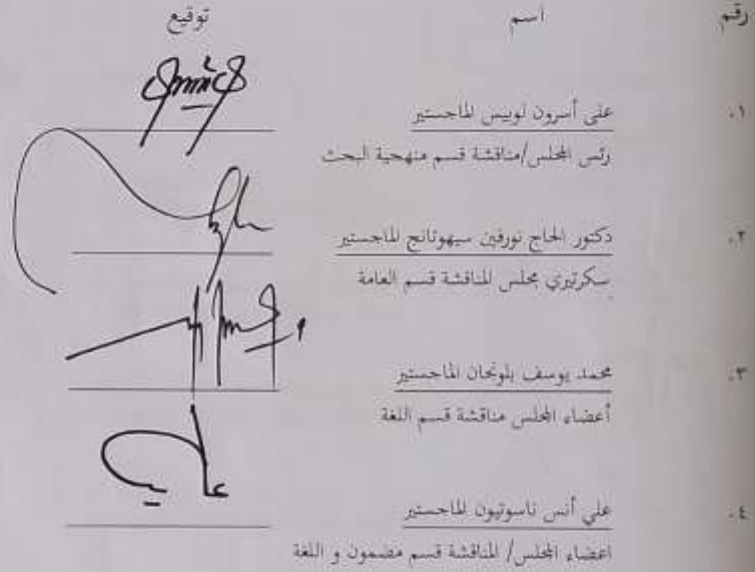 رقم اسم توقيع
١. علي أسرون لوبيس الماجستير
رئس المجلس/مناقشة قسم منهجية البحث
٢. دكتور الحاج نورفين سيهوتانج الماجستير
سكرتيري مجلس المناقشة قسم العامة
٣. محمد يوسف بلونجان الماجستير
أعضاء المجلس مناقشة قسم اللغة
٤. علي أنس ناسوتيون الماجستير
اعضاء المجلس/ المناقشة قسم مضمون و اللغة